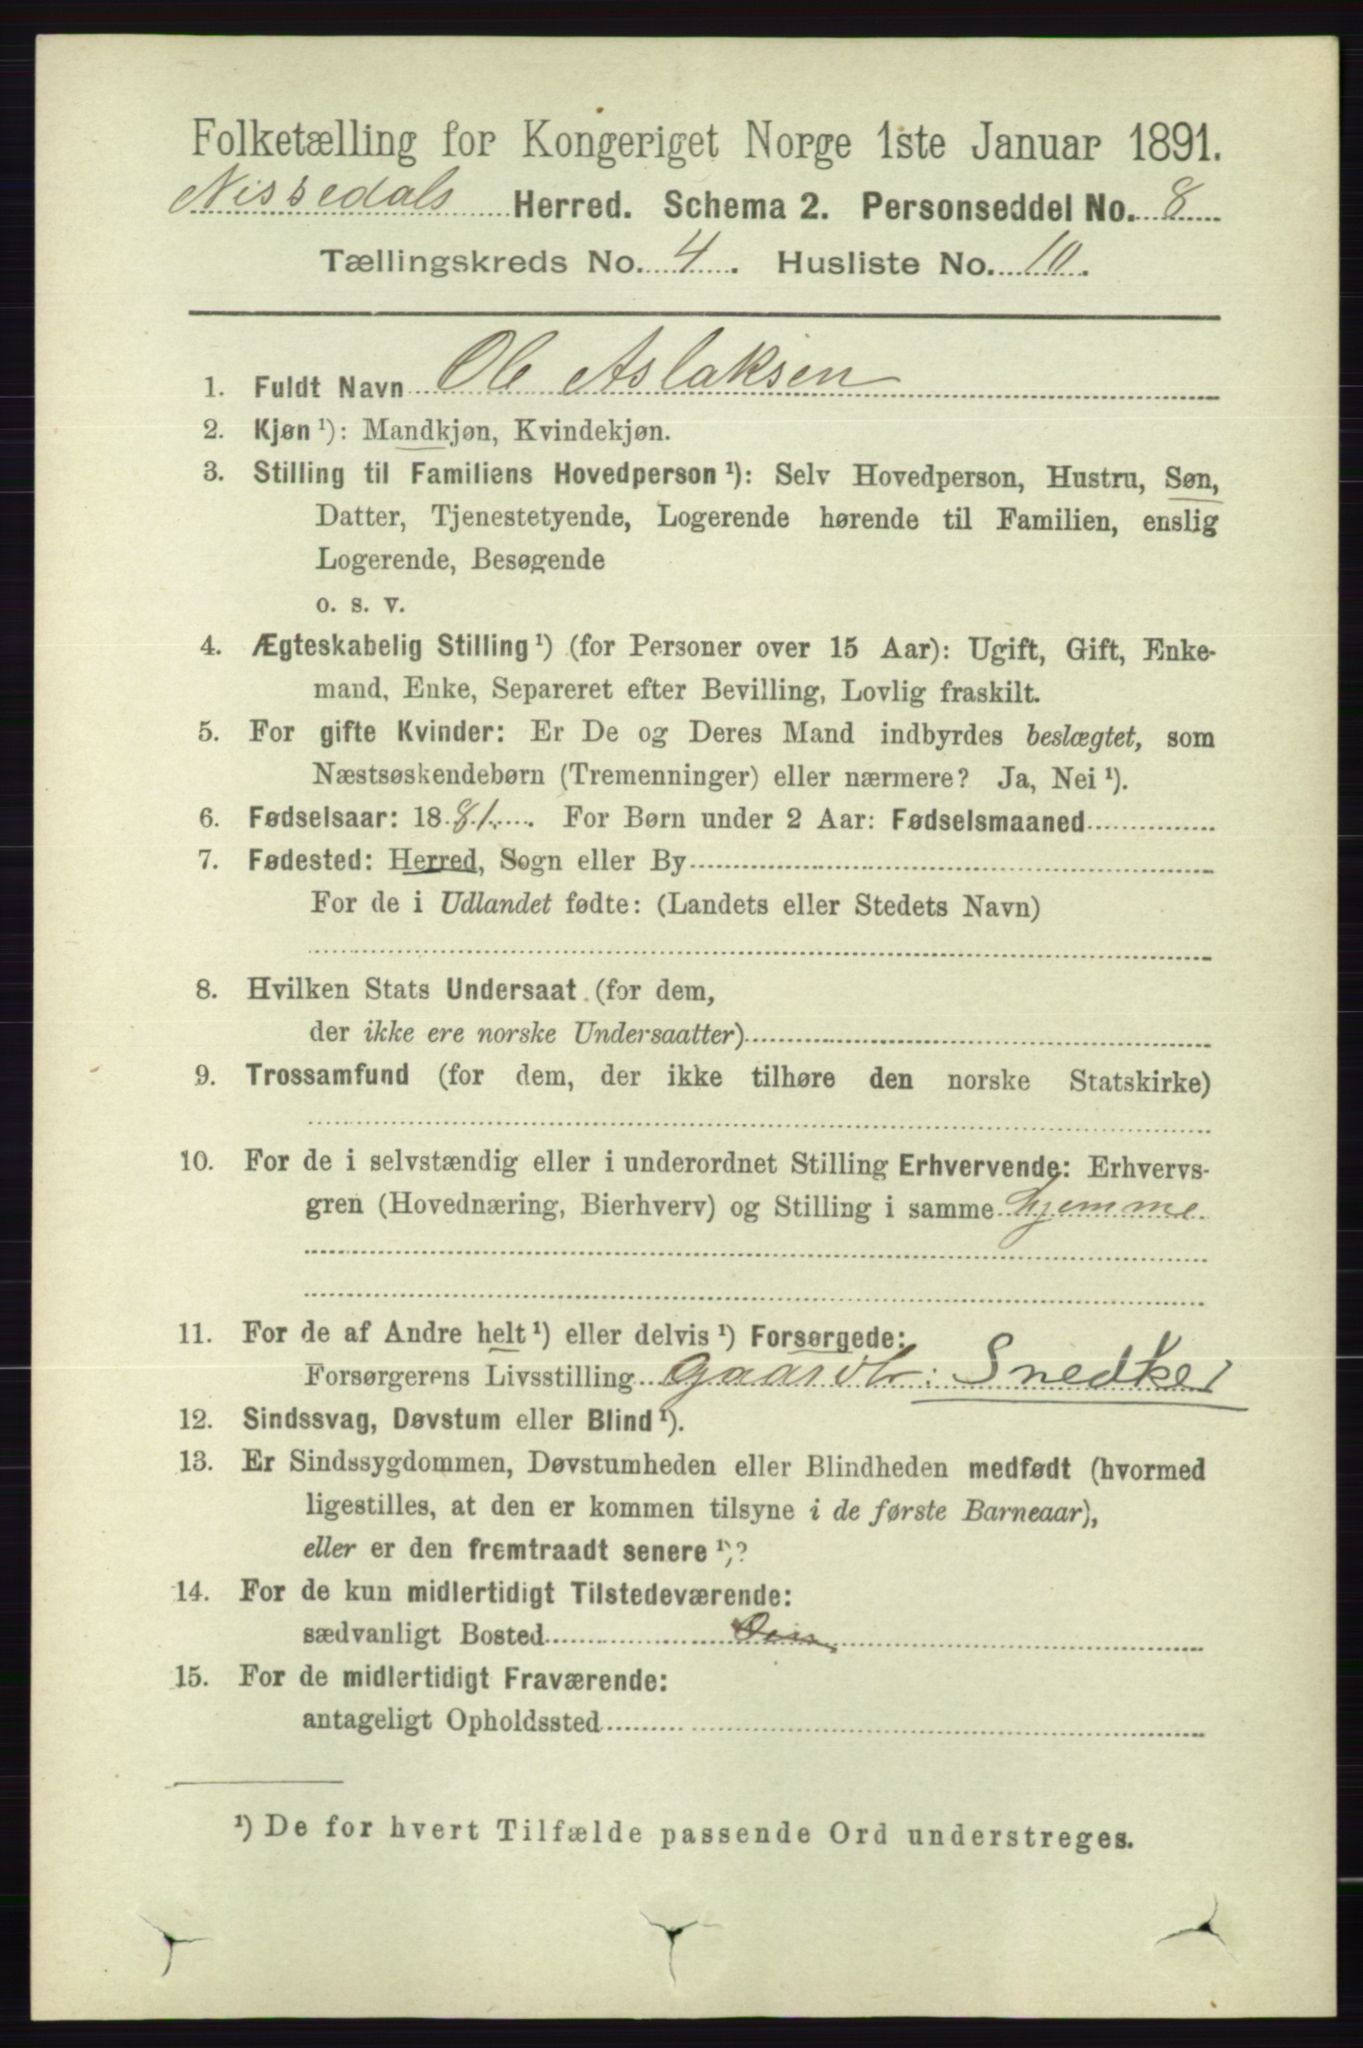 Folketælling for Kongeriget Norge 1ste Januar 1891.
Nissedals Herred. Schema 2. Personseddel No. 8
Tællingskreds No. 4. Husliste No. 10.
1. Fuldt Navn Ole Aslaksen
2. Kjøn ¹): Mandkjøn, Kvindekjøn.
3. Stilling til Familiens Hovedperson ¹): Selv Hovedperson, Hustru, Søn,
Datter, Tjenestetyende, Logerende hørende til Familien, enslig
Logerende, Besøgende
o. s. v.
4. Ægteskabelig Stilling ¹) (for Personer over 15 Aar): Ugift, Gift, Enke-
mand, Enke, Separeret efter Bevilling, Lovlig fraskilt.
5. For gifte Kvinder: Er De og Deres Mand indbyrdes beslægtet, som
Næstsøskendebørn (Tremenninger) eller nærmere? Ja, Nei ¹).
6. Fødselsaar: 1881. For Børn under 2 Aar: Fødselsmaaned
7. Fødested: Herred, Sogn eller By
For de i Udlandet fødte: (Landets eller Stedets Navn)
8. Hvilken Stats Undersaat (for dem,
der ikke ere norske Undersaatter)
9. Trossamfund (for dem, der ikke tilhøre den norske Statskirke)
10. For de i selvstændig eller i underordnet Stilling Erhvervende: Erhvervs-
gren (Hovednæring, Bierhverv) og Stilling i samme hjemme
11. For de af Andre helt ¹) eller delvis ¹) Forsørgede:
Forsørgerens Livsstilling Gaardbr: Snedker
12. Sindssvag, Døvstum eller Blind ¹).
13. Er Sindssygdommen, Døvstumheden eller Blindheden medfødt (hvormed
ligestilles, at den er kommen tilsyne i de første Barneaar),
eller er den fremtraadt senere ¹)?
14. For de kun midlertidigt Tilstedeværende:
sædvanligt Bosted
15. For de midlertidigt Fraværende:
antageligt Opholdssted
¹) De for hvert Tilfælde passende Ord understreges.